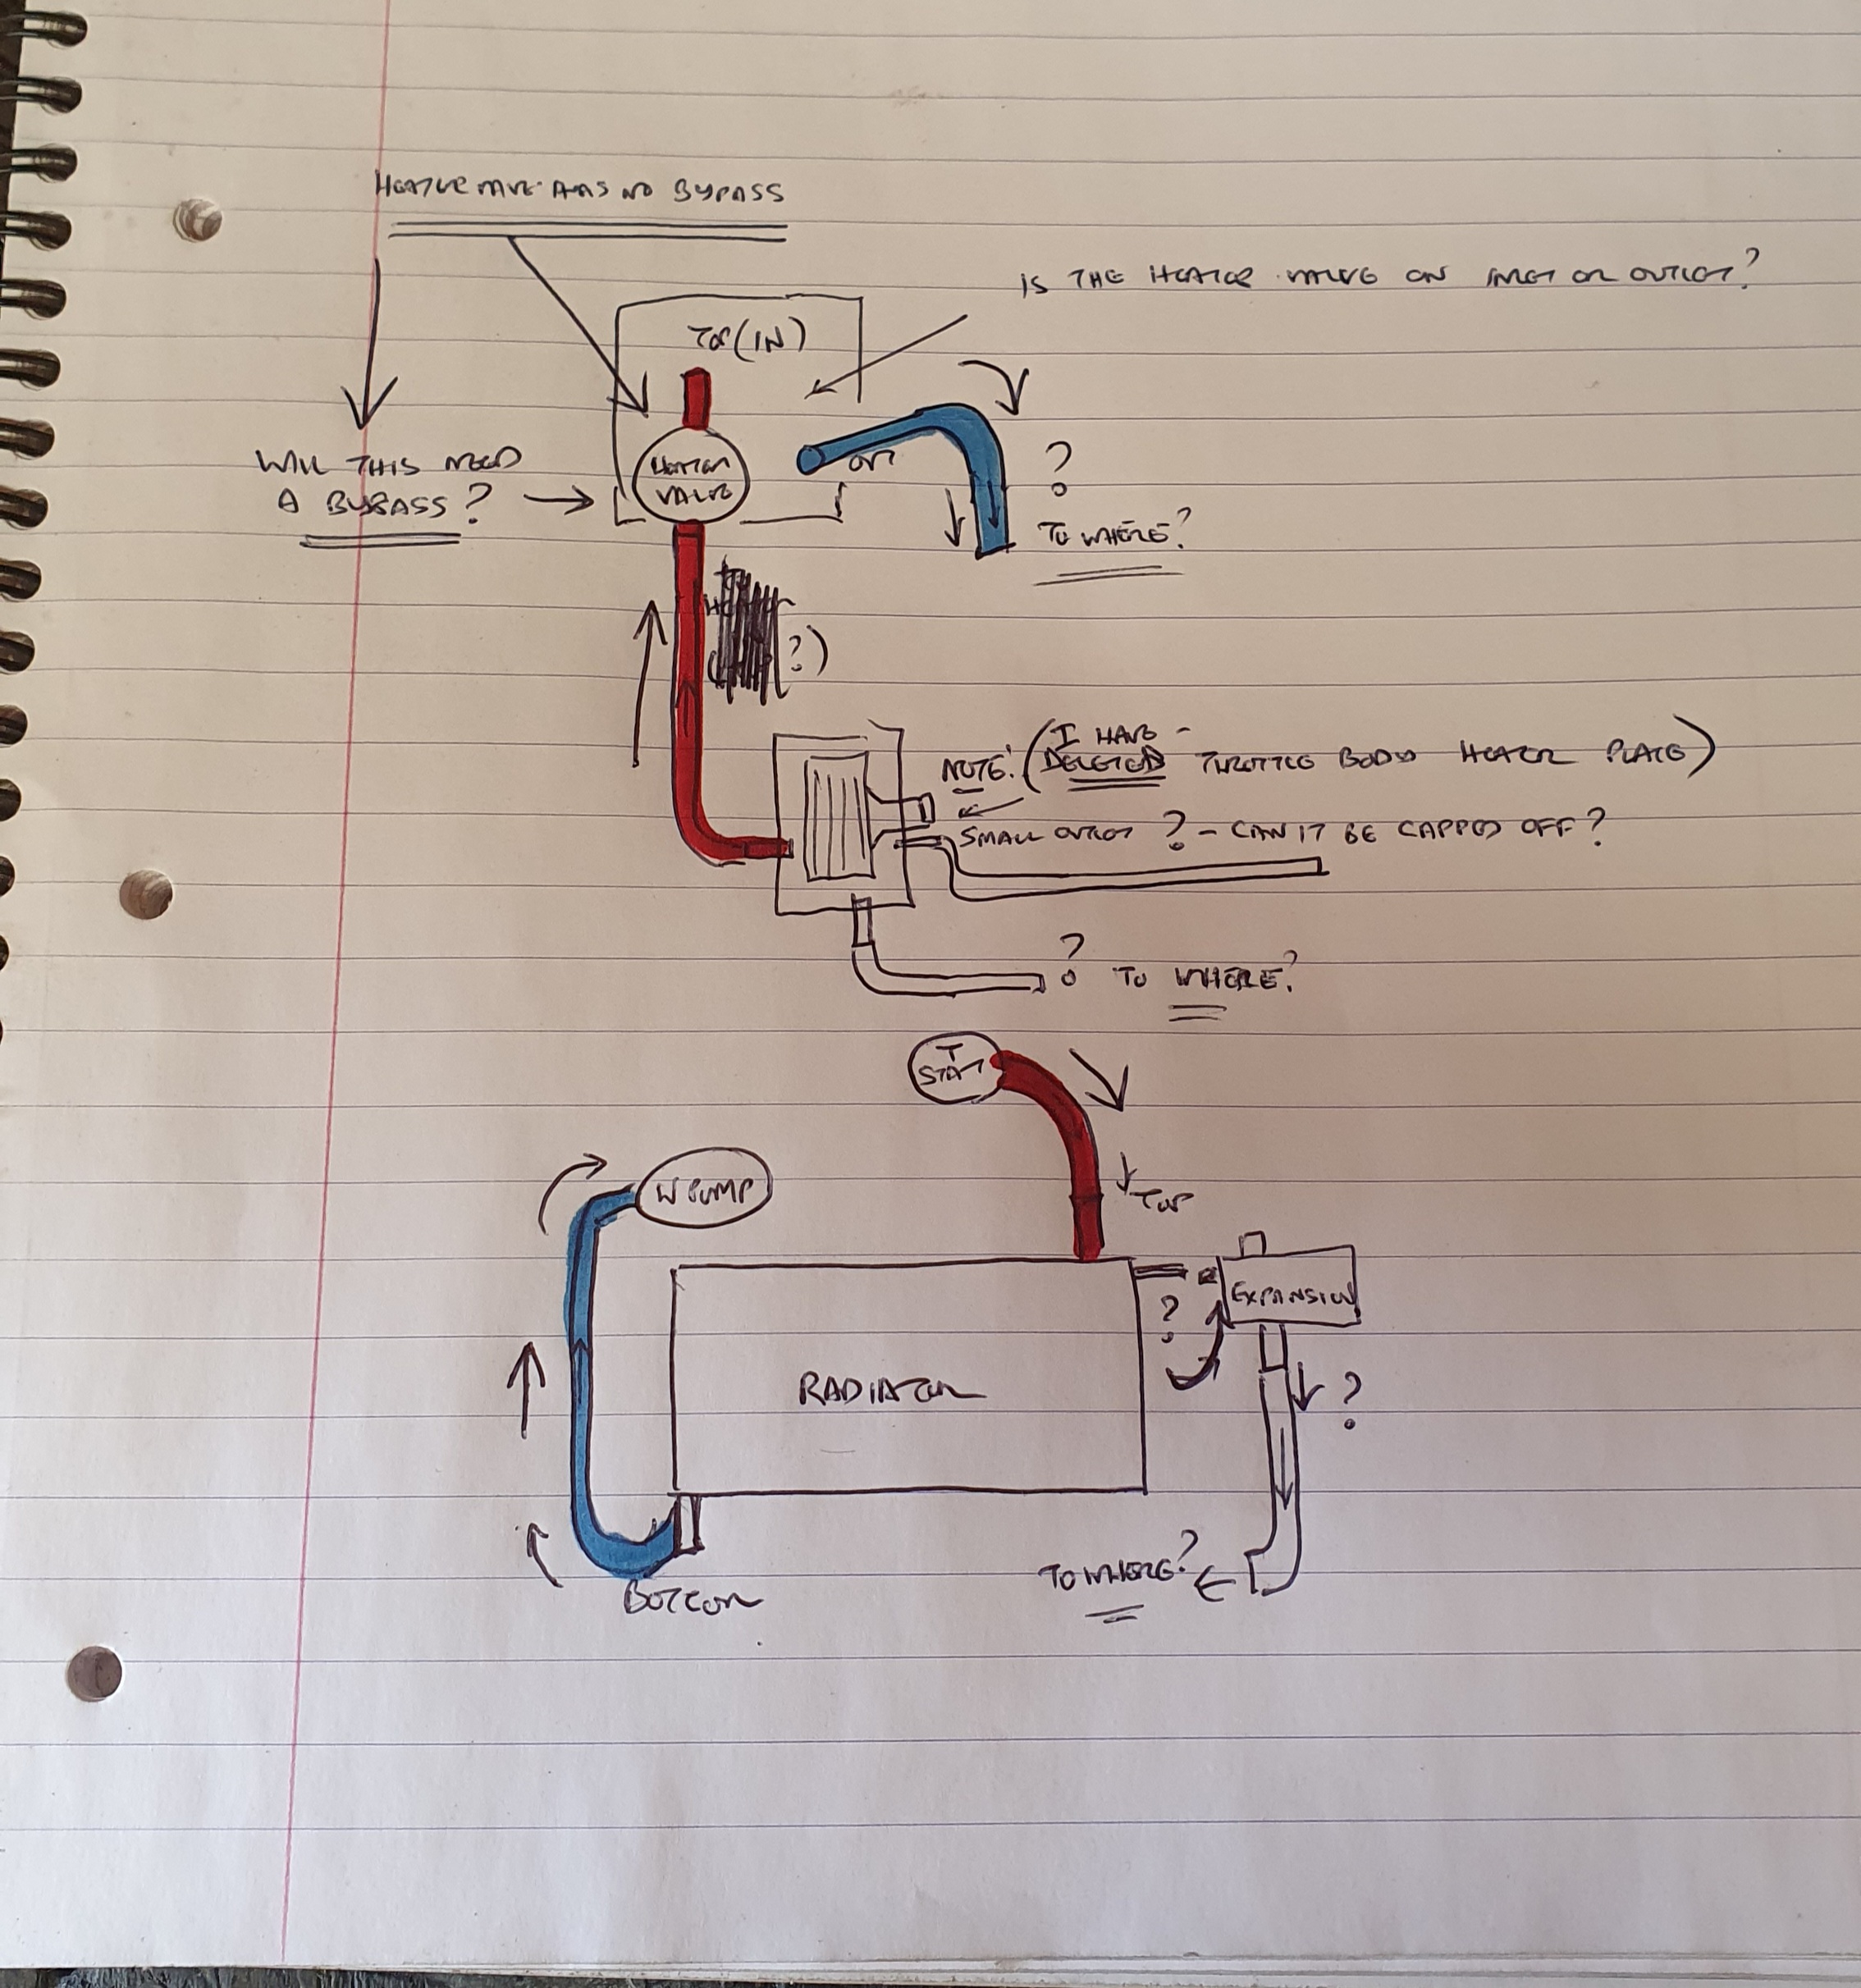 HEATER VALVE HAS NO BYPASS
IS THE HEATER VALVE ON INLET OR OUTLET?
TOP (IN)
WILL THIS NEED
A BYPASS?
HEATER
VALVE
OUT
?
TO WHERE?
?)
NOTE! (I HAVE -
DELETED THROTTLE BODY HEATER PLATE)
SMALL OUTLET ? - CAN IT BE CAPPED OFF?
? TO WHERE?
T
STAT
W PUMP
TOP
EXPANSION
?
RADIATOR
?
TO WHERE?
BOTTOM